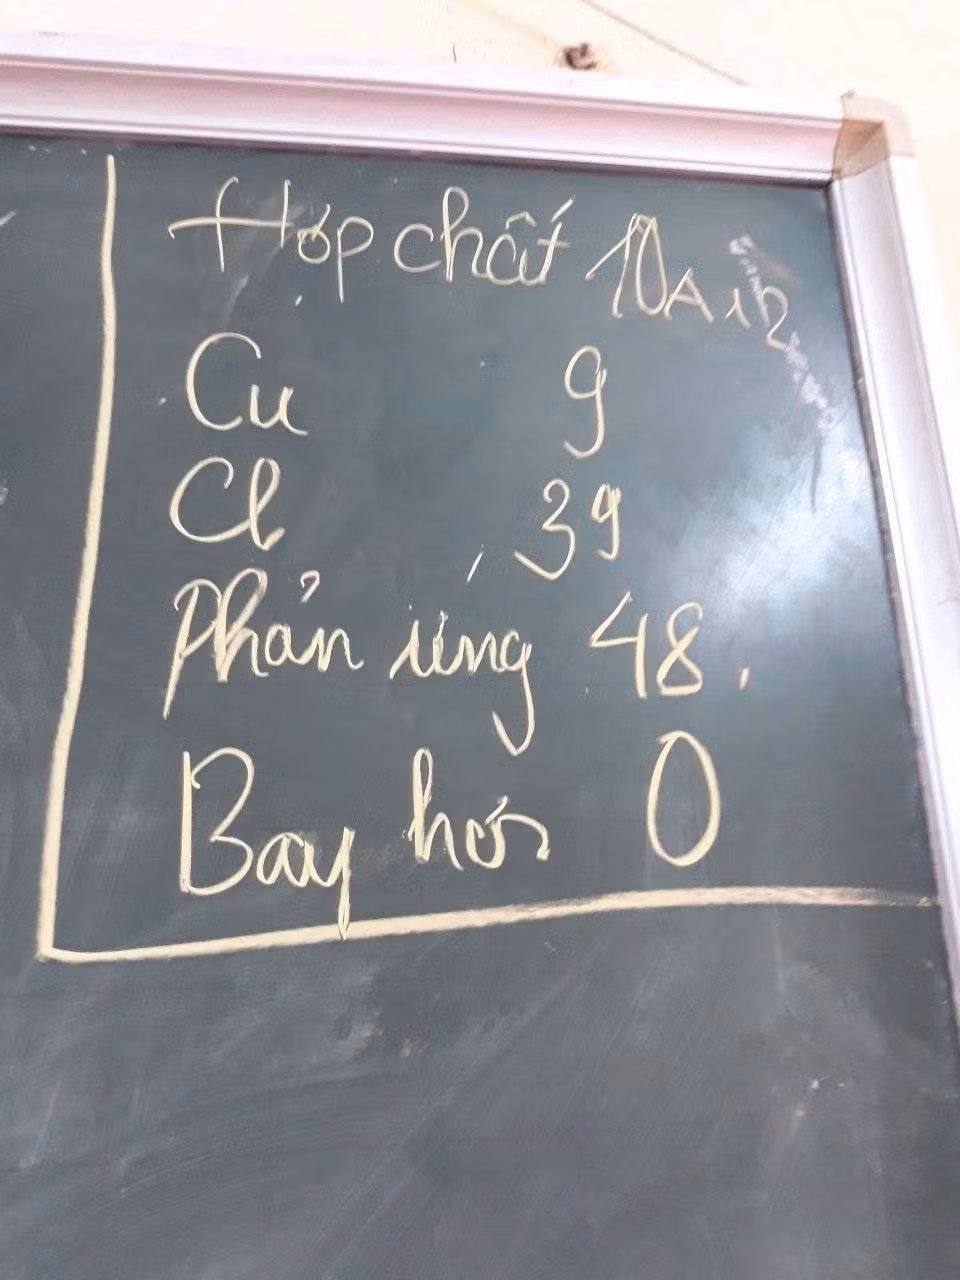 Hợp chất 10A12
Cu 9
Cl 39
Phản ứng 48.
Bay hơi 0